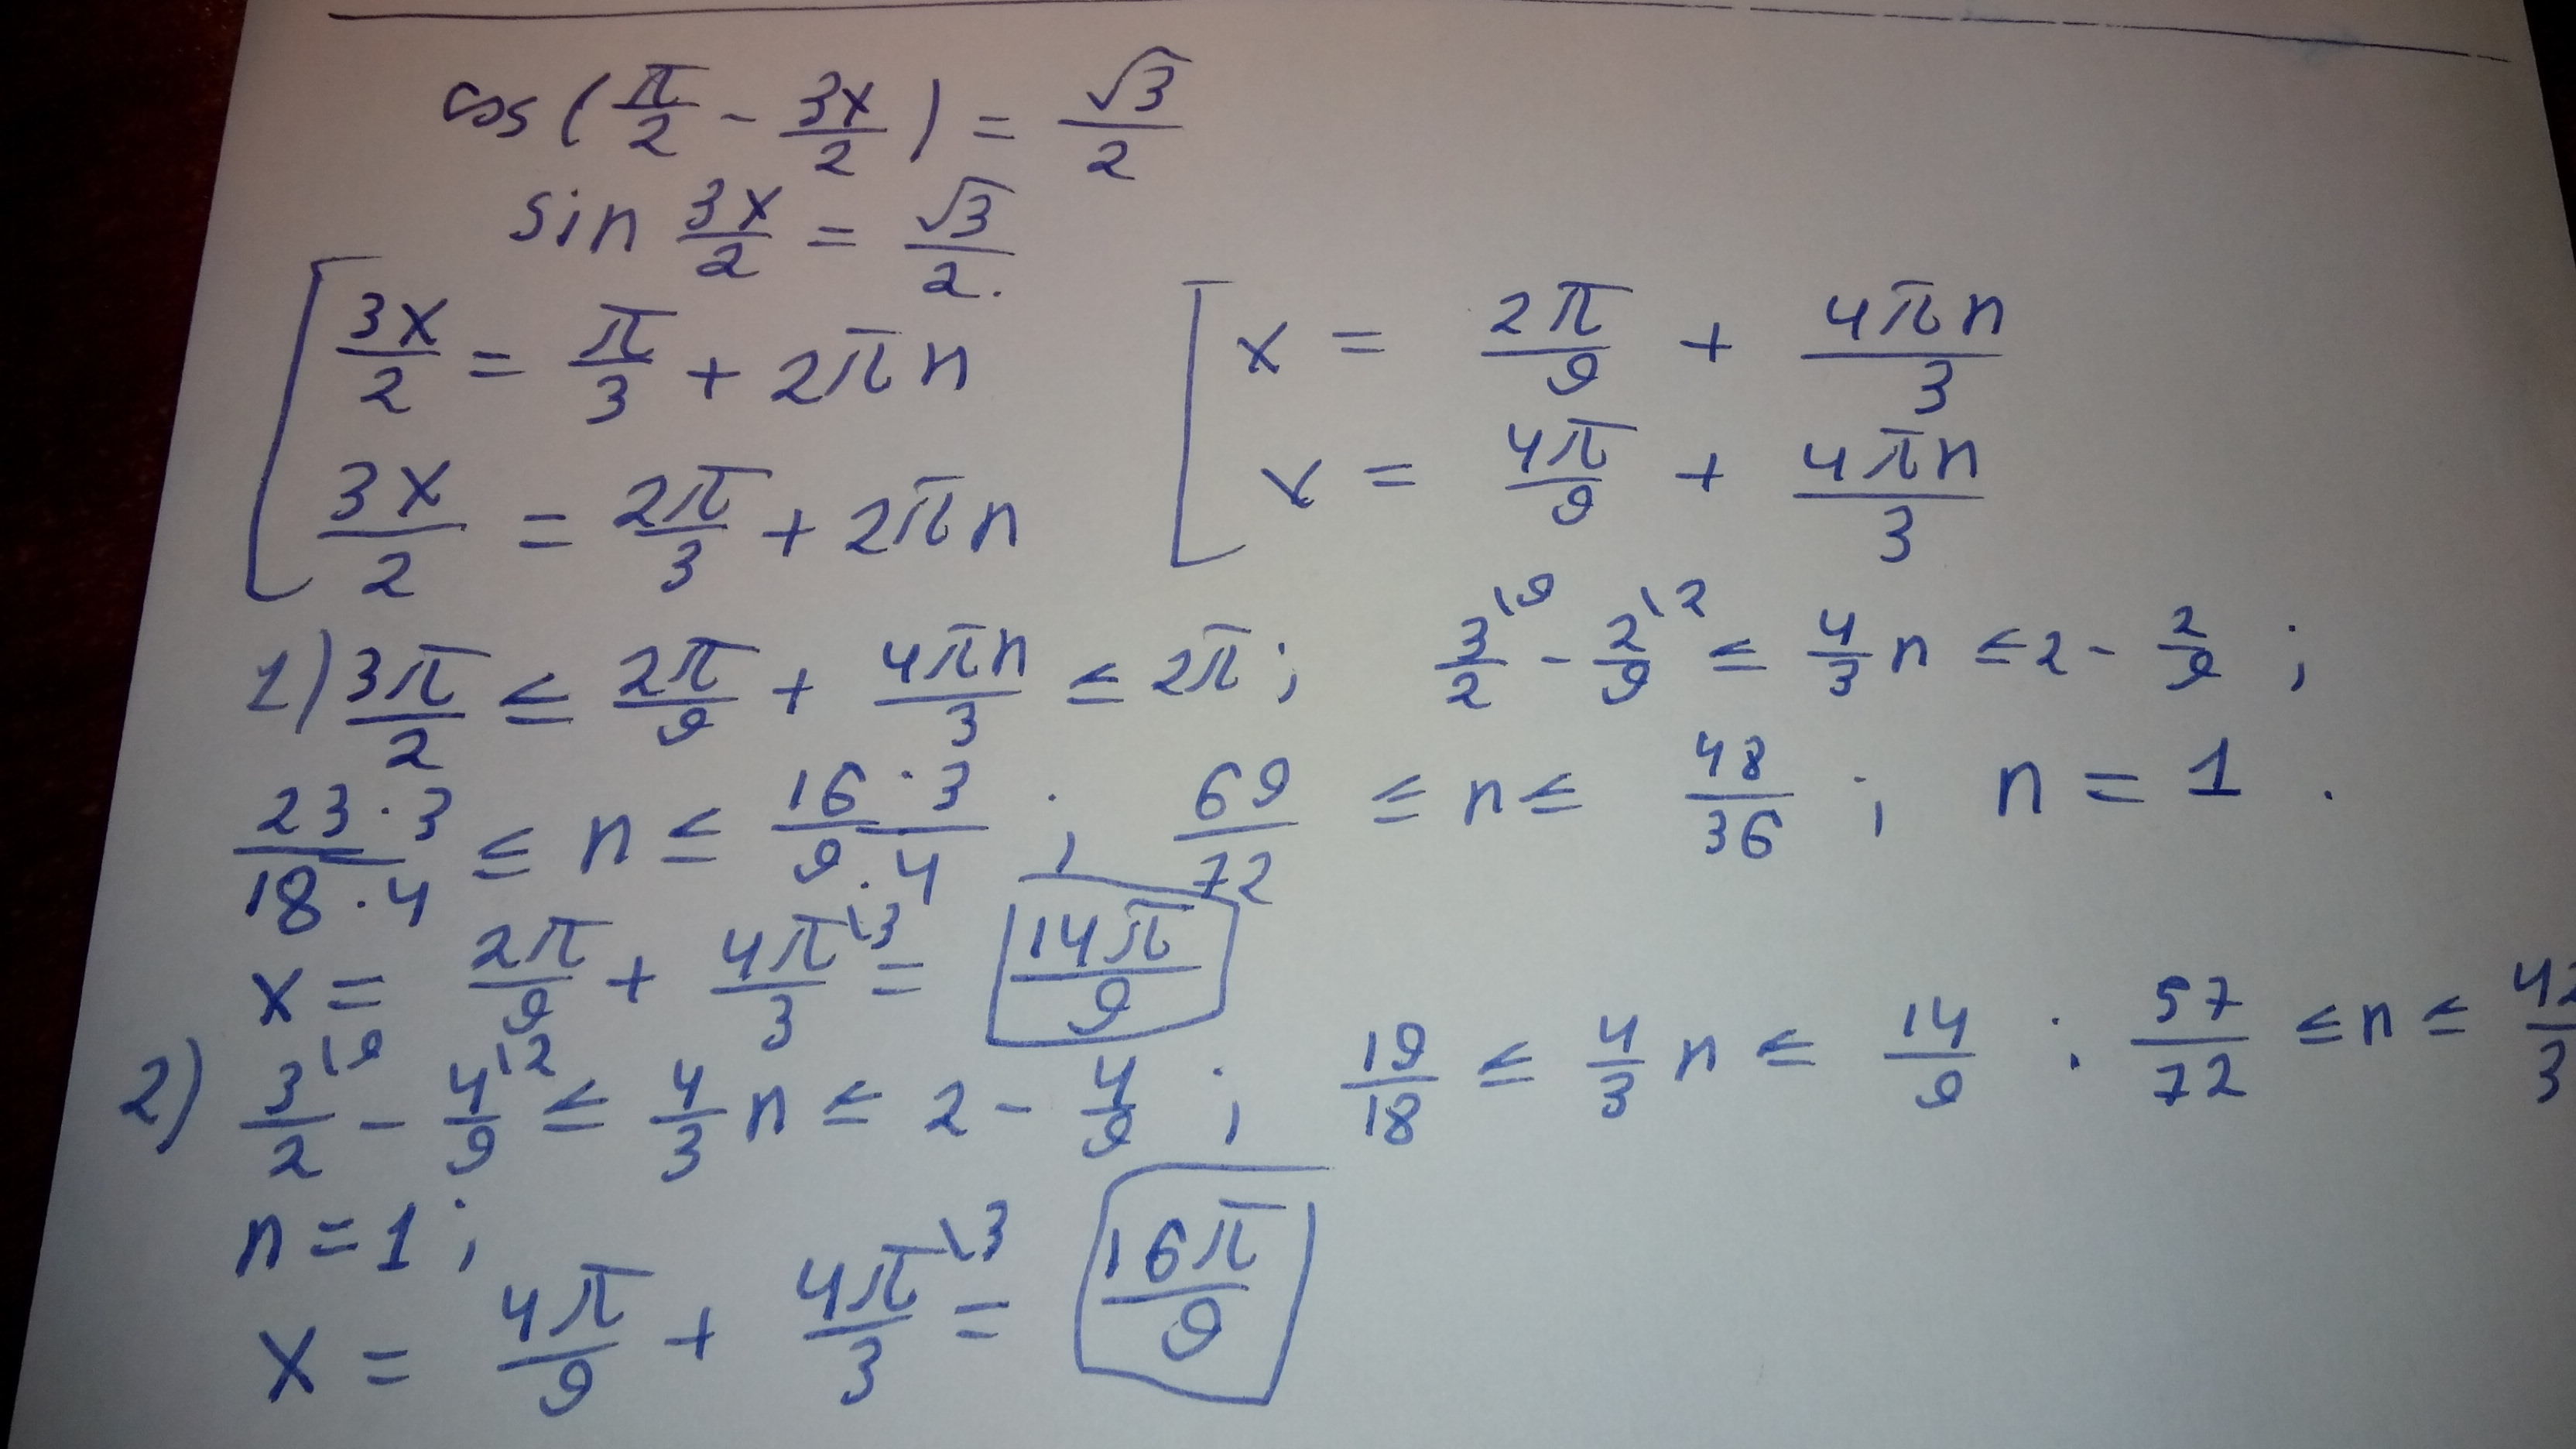 cos(π/2 - 3x/2) = √3/2
sin 3x/2 = √3/2.
[ 3x/2 = π/3 + 2πn
3x/2 = 2π/3 + 2πn
[ x = 2π/9 + 4πn/3
x = 4π/9 + 4πn/3
1) 3π/2 ≤ 2π/9 + 4πn/3 ≤ 2π; 3/2 \9 - 2/9 \2 ≤ 4/3 n ≤ 2 - 2/9 ;
23·3/18·4 ≤ n ≤ 16·3/9·4 ; 69/72 ≤ n ≤ 48/36 ; n = 1 .
x = 2π/9 + 4π/3 \3 = 14π/9
2) 3/2 \9 - 4/9 \2 ≤ 4/3 n ≤ 2 - 4/9 ; 19/18 ≤ 4/3 n ≤ 14/9 ; 57/72 ≤ n ≤ 42/3
n = 1 ;
x = 4π/9 + 4π/3 \3 = 16π/9